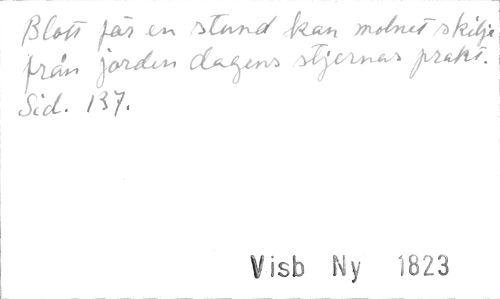 Blott för en stund kan molnet skilja
från jorden dagens stjernas prakt.
Sid. 137.
Visb Ny 1823